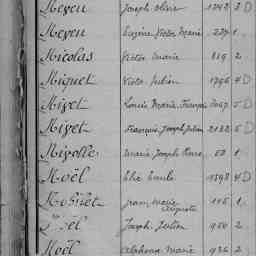 Meyeu Joseph Olivier 1242 3 D
Meyeu Eugène Victor Marie 229 1
Nicolas Victor Marie 819 2
Niquet Victor Julien 1796 4 D
Nizet Louis Marie François 2067 5 D
Nizet François Joseph Julien 2132 5 D
Nizolle Marie Joseph Pierre 60 1
Noël Elie Emile 1598 4 D
Nobuet Jean Marie Auguste 145 1
Noël Joseph Julien 950 2
Noël Alphonse Marie 926 2